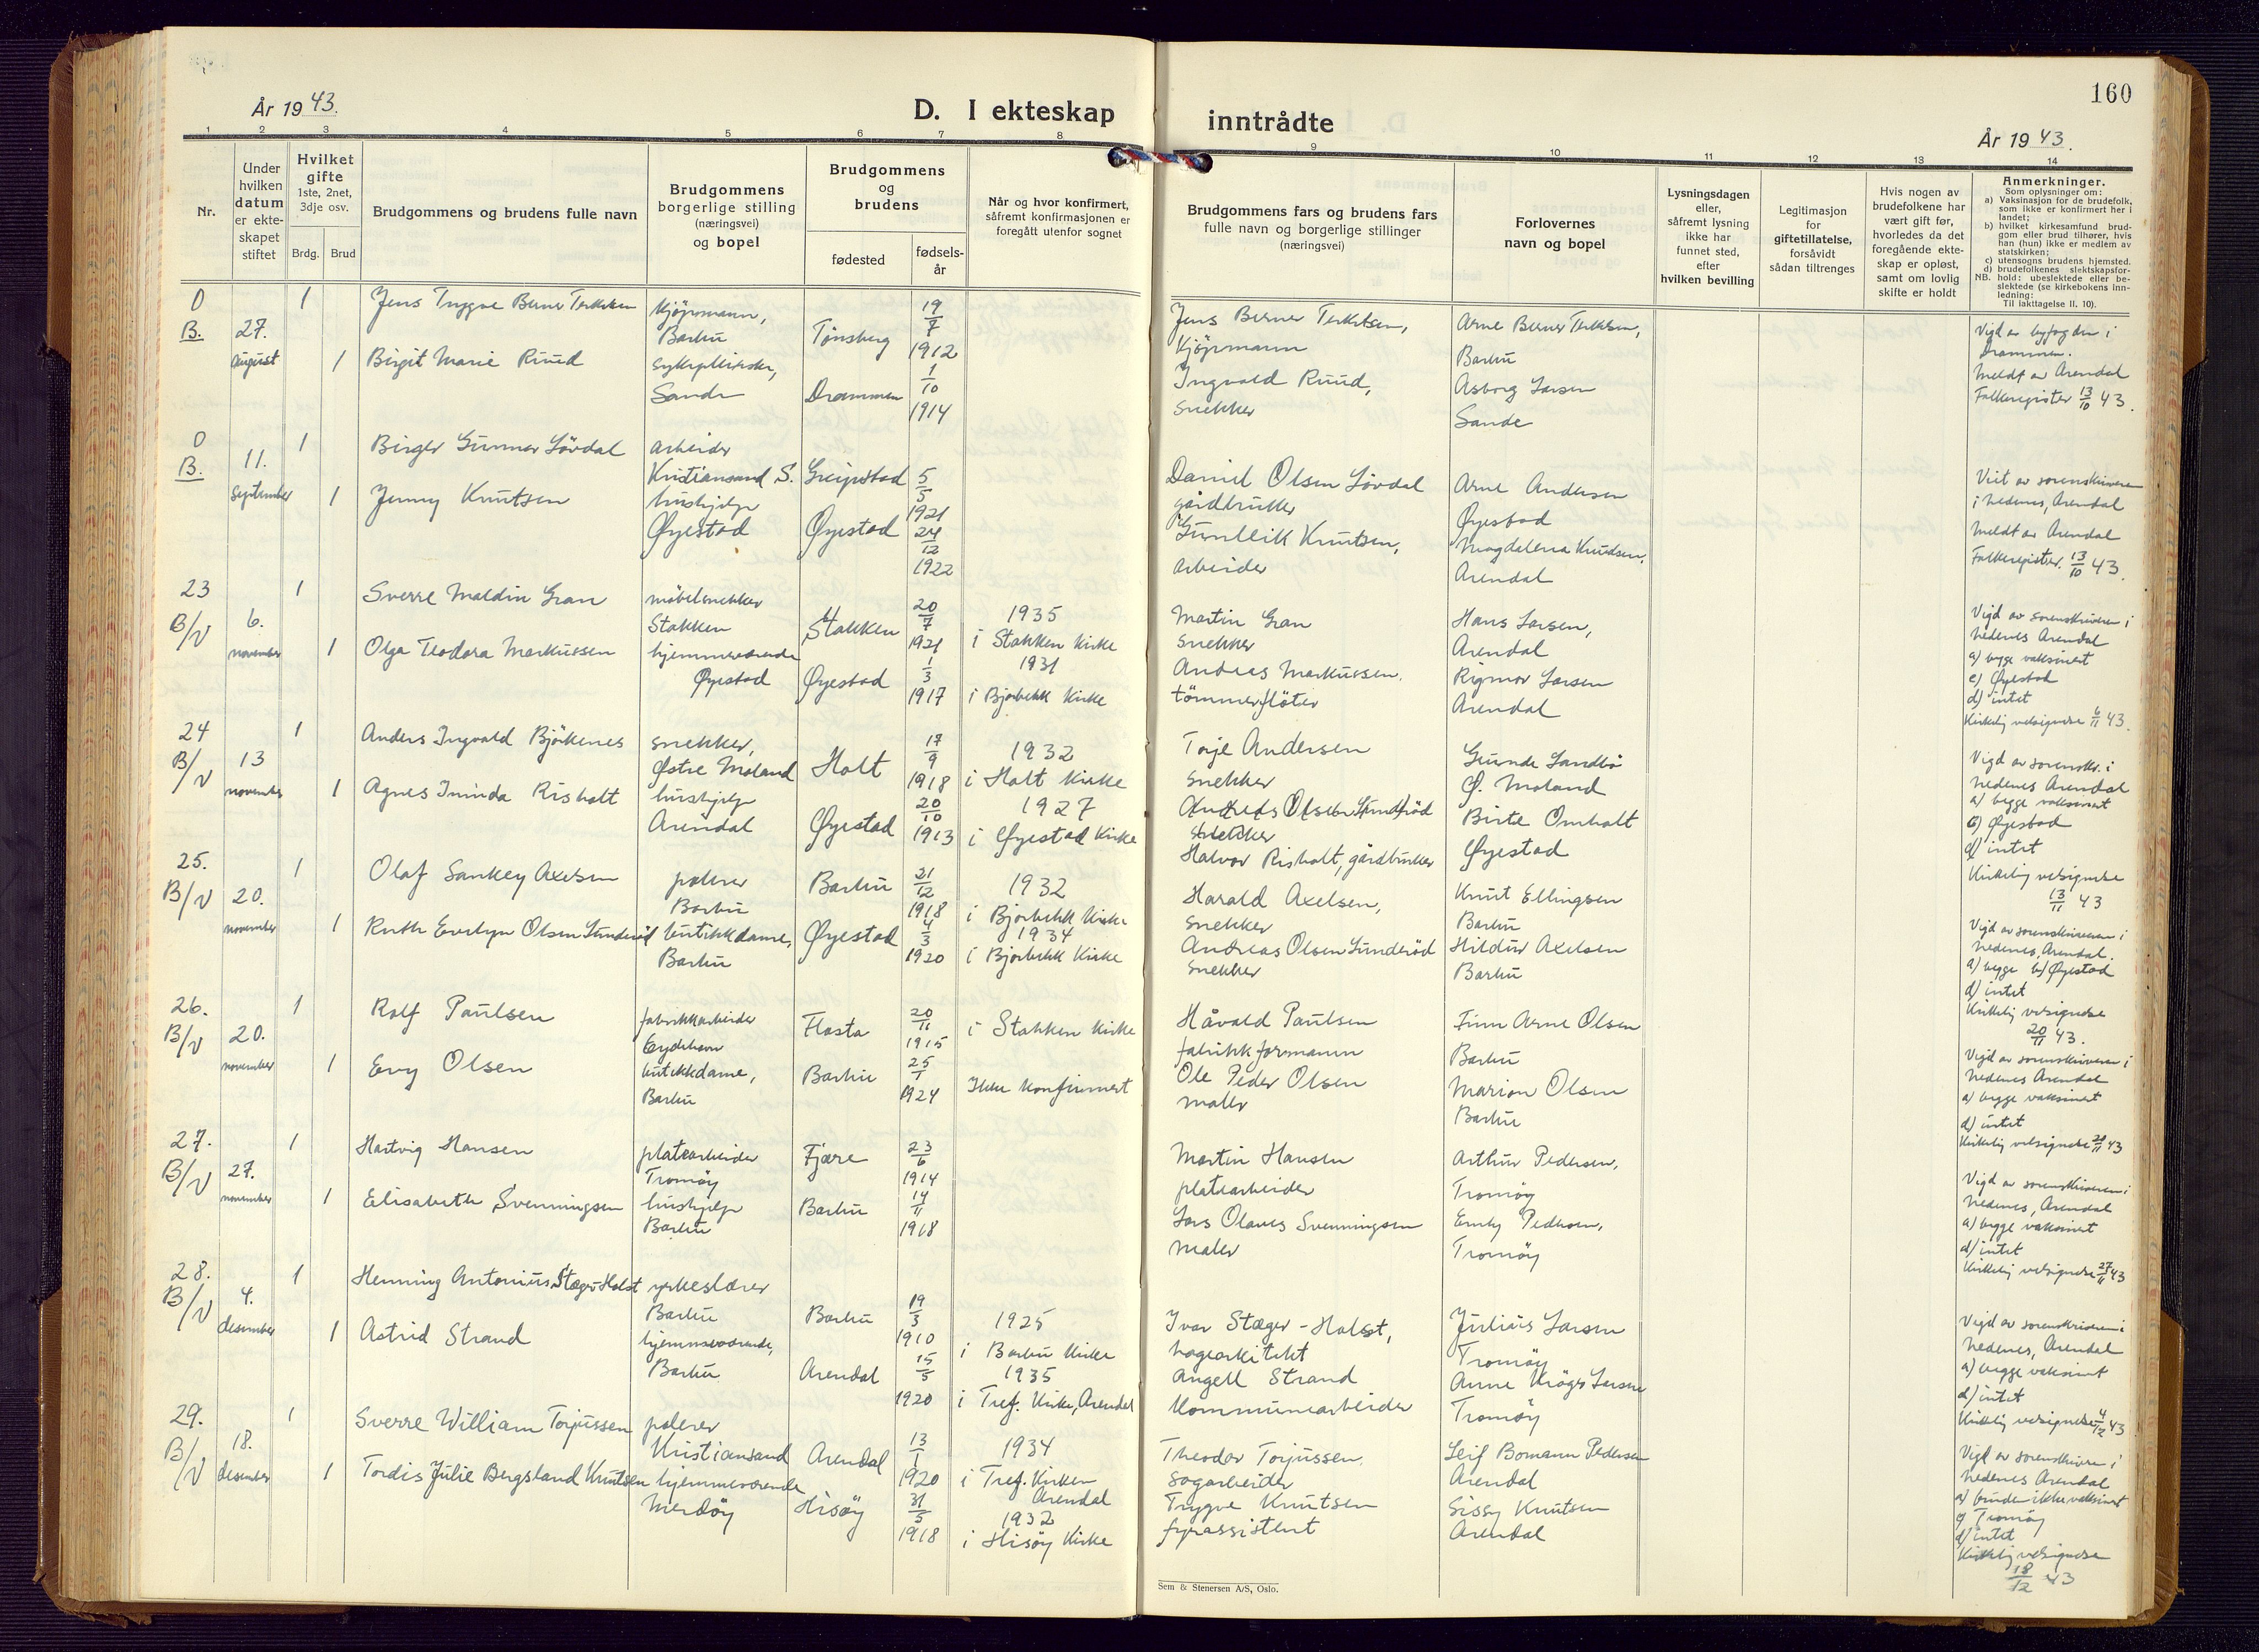 160
År 1943.
D. I ekteskap
inntrådte
År 1943.
1 2 3 4 5 6 7 8 9 10 11 12 13 14
Nr.
Under hvilken datum er ekteskapet stiftet
Hvilket gifte
1ste, 2net, 3dje osv.
Brdg.
Brud
Brudgommens og brudens fulle navn
Brudgommens borgerlige stilling (næringsvei) og bopel
Brudgommens og brudens
fødested
fødsels-år
Når og hvor konfirmert, såfremt konfirmasjonen er foregått utenfor sognet
Brudgommens fars og brudens fars fulle navn og borgerlige stillinger (næringsvei)
Forlovernes navn og bopel
Lysningsdagen eller, såfremt lysning ikke har funnet sted, efter hvilken bevilling
Legitimasjon for giftetillatelse, forsåvidt sådan tiltrenges
Hvis nogen av brudefolkene har vært gift før, hvorledes da det foregående ekteskap er opløst, samt om lovlig skifte er holdt
Anmerkninger.
Som oplysninger om:
a) Vaksinasjon for de brudefolk, som ikke er konfirmert her i landet;
b) hvilket kirkesamfund brudgom eller brud tilhører, hvis han (hun) ikke er medlem av statskirken;
c) utensogns brudens hjemsted.
d) brudefolkenes slektskapsforhold: ubeslektede eller beslektede (se kirkebokens innledning:
NB. Til iakttagelse II, 10).
0 B.
27. august
1
Jens Trygve Berner Terkelsen
Kjöpmann, Barbu
Tönsberg
19/7 1912
Jens Berner Terkelsen, Kjöpmann
Arne Berner Terkelsen, Barbu
1
Birgit Marie Ruud
sykepleierske, Sande
Drammen
1/10 1914
Ingvald Ruud, snekker
Asborg Larsen Sande
Vigd av byfogden i Drammen.
Meldt av Arendal Folkeregister 13/10 43.
0 B.
11. september
1
Birger Gunnar Lövdal
arbeider Kristiansand S.
Greipstad
5/5 1921
Daniel Olsen Lövdal gårdbruker
Arne Andersen Øyestad
1
Jenny Knutsen
hushjelp Øyestad
Øyestad
24/12 1922
Gunleik Knutsen, arbeider
Magdalena Knudsen, Arendal
Viet av sorenskriveren i Nedenes, Arendal
Meldt av Arendal Folkeregister. 13/10 43.
23 B/V
6. november
1
Sverre Maldin Gran
möbelsnekker Stokken
Stokken
20/7 1921
1935 i Stokken Kirke
Martin Gran snekker
Hans Larsen, Arendal
1
Olga Teodora Markussen
hjemmeværende Øyestad
Øyestad
1/3 1917
1931 i Bjorbekk Kirke
Andreas Markussen. tömmerflöter
Rigmor Larsen Arendal
Vigd av sorenskriveren i Nedenes Arendal
a) begge vaksinert
c) Øyestad
d) intet
Kirkelig velsignelse 6/11 43.
24 B/V
13 november
1
Anders Ingvald Bjökenes
snekker, Østre Moland
Holt
17/9 1918
1932 i Holt Kirke
Torje Andersen snekker
Gunde Sandbö Ø. Moland
1
Agnes Irinda Risholt
hushjelp Arendal
Øyestad
20/10 1913
1927 i Øyestad Kirke
Andreas Olsen Sunderöd snekker
Halvor Risholt, gårdbruker
Birte Omholt Øyestad
Vigd av sorenskr. i Nedenes Arendal
a) begge vaksinert
c) Øyestad
d) intet
Kirkelig velsignelse 13/11 43
25. B/V
20. november
1
Olaf Sankey Axelsen
polerer Barbu
Barbu
21/12 1918
1932 i Bjorbekk Kirke
Harald Axelsen, snekker
Knut Ellingsen Barbu
1
Ruth Evelyn Olsen Sunderöd
butikkdame, Barbu
Øyestad
4/3 1920
1934 i Bjorbekk Kirke
Andreas Olsen Sunderöd snekker
Hildur Axelsen Barbu
Vigd av sorenskriveren i Nedenes, Arendal.
a) begge b) Øyestad
d) intet
Kirkelig velsignelse 20/11 43.
26. B/V
20. november
1
Rolf Paulsen
fabrikkarbeider Eydehavn
Flosta
20/11 1915
i Stokken Kirke
Håvald Paulsen fabrikkformann
Finn Arne Olsen Barbu
1
Evy Olsen
butikkdame, Barbu
Barbu
25/1 1924
Ikke konfirmert
Ole Peder Olsen maler
Marion Olsen Barbu
Vigd av sorenskriveren i Nedenes Arendal
a) begge vaksinert
d) intet
Kirkelig velsignelse 20/11 43
27. B/V
27. november
1
Hartvig Hansen
platearbeider Tromöy
Fjære
23/6 1914
Martin Hansen platearbeider
Arthur Pedersen, Tromöy
1
Elisabeth Svenningsen
hushjelp Barbu
Barbu
14/11 1918
Lars Olaves Svenningsen maler
Emly Pedersen, Tromöy
Vigd av sorenskriveren i Nedenes, Arendal
a) begge vaksinert
d) intet
Kirkelig velsignelse 27/11 43
28. B/V
4. desember
1
Henning Antonius Stæger-Holst
yrkeslærer Barbu
Barbu
19/3 1910
1925 i Barbu Kirke
Ivar Stæger-Holst, hagearkitekt
Julius Larsen Tromöy
1
Astrid Strand
hjemmeværende, Barbu
Arendal
15/5 1920
1935 i Tref. Kirke, Arendal
Angell Strand Kommunearbeider
Anne Kröger Larsen Tromöy
Vigd av sorenskriveren i Nedenes, Arendal
a) begge vaksinert
d) intet
Kirkelig velsignelse 4/12 43
29. B/V
18. desember
1
Sverre William Torjussen
polerer Kristiansand
Arendal
13/1 1920
1934 i Tref. Kirken Arendal
Theodor Torjussen. sagarbeider
Leif Bomann Pedersen Arendal
1
Tordis Julie Bergsland Knutsen
hjemmeværende Merdöy
Hisöy
31/5 1918
1932 i Hisöy Kirke
Trygve Knutsen fyrassistent
Sissy Knutsen Arendal
Vigd av sorenskriveren i Nedenes Arendal
a) bruden ikke vaksinert
c) Tromöy
d) intet
Kirkelig velsignelse 18/12 43
Sem & Stenersen A/S, Oslo.